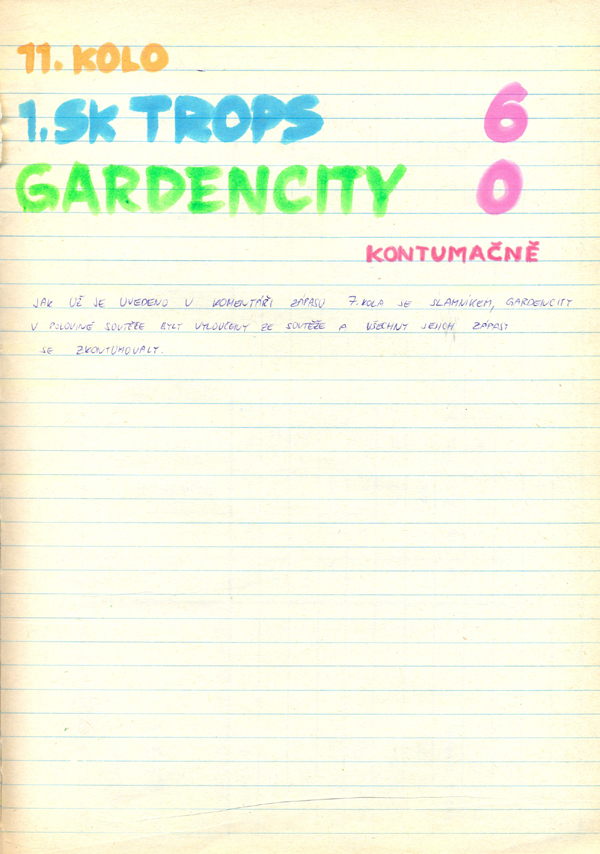 11. KOLO
1. SK TROPS 6
GARDENCITY 0
KONTUMAČNĚ
JAK UŽ JE UVEDENO V KOMENTÁŘI ZÁPASU 7. KOLA SE SLAMNÍKEM, GARDENCITY
V POLOVINĚ SOUTĚŽE BYLY VYLOUČENY ZE SOUTĚŽE A VŠECHNY JEJICH ZÁPASY
SE ZKONTUMOVALY.